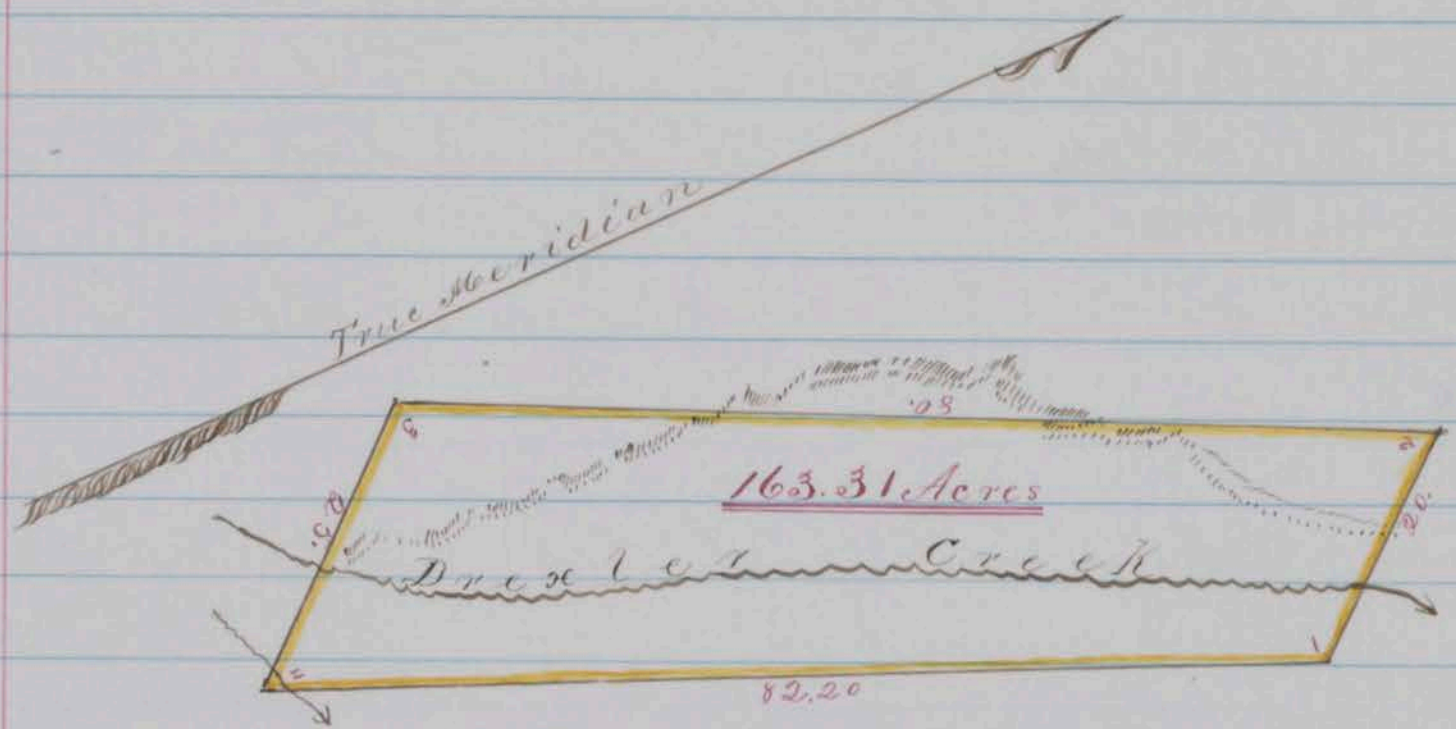 True Meridian
80.
3
2
163.31 Acres
20.
Drexler Creek
1
82.20